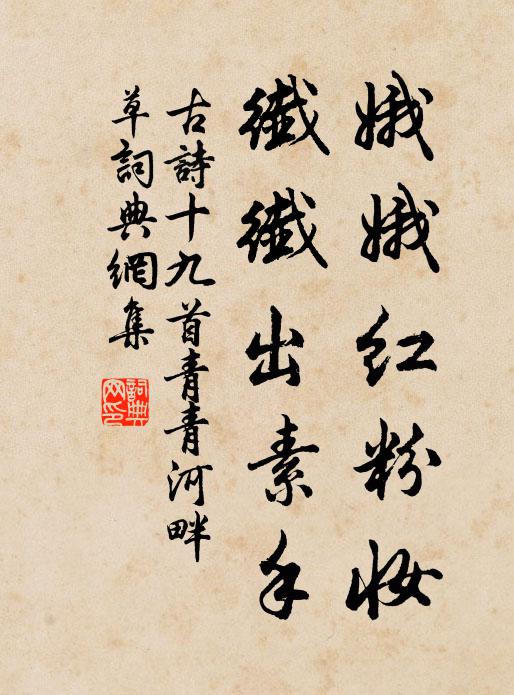 娥娥红粉妆
纖纖出素手
古詩十九首青青河畔
草詞典網集
詞典
网印